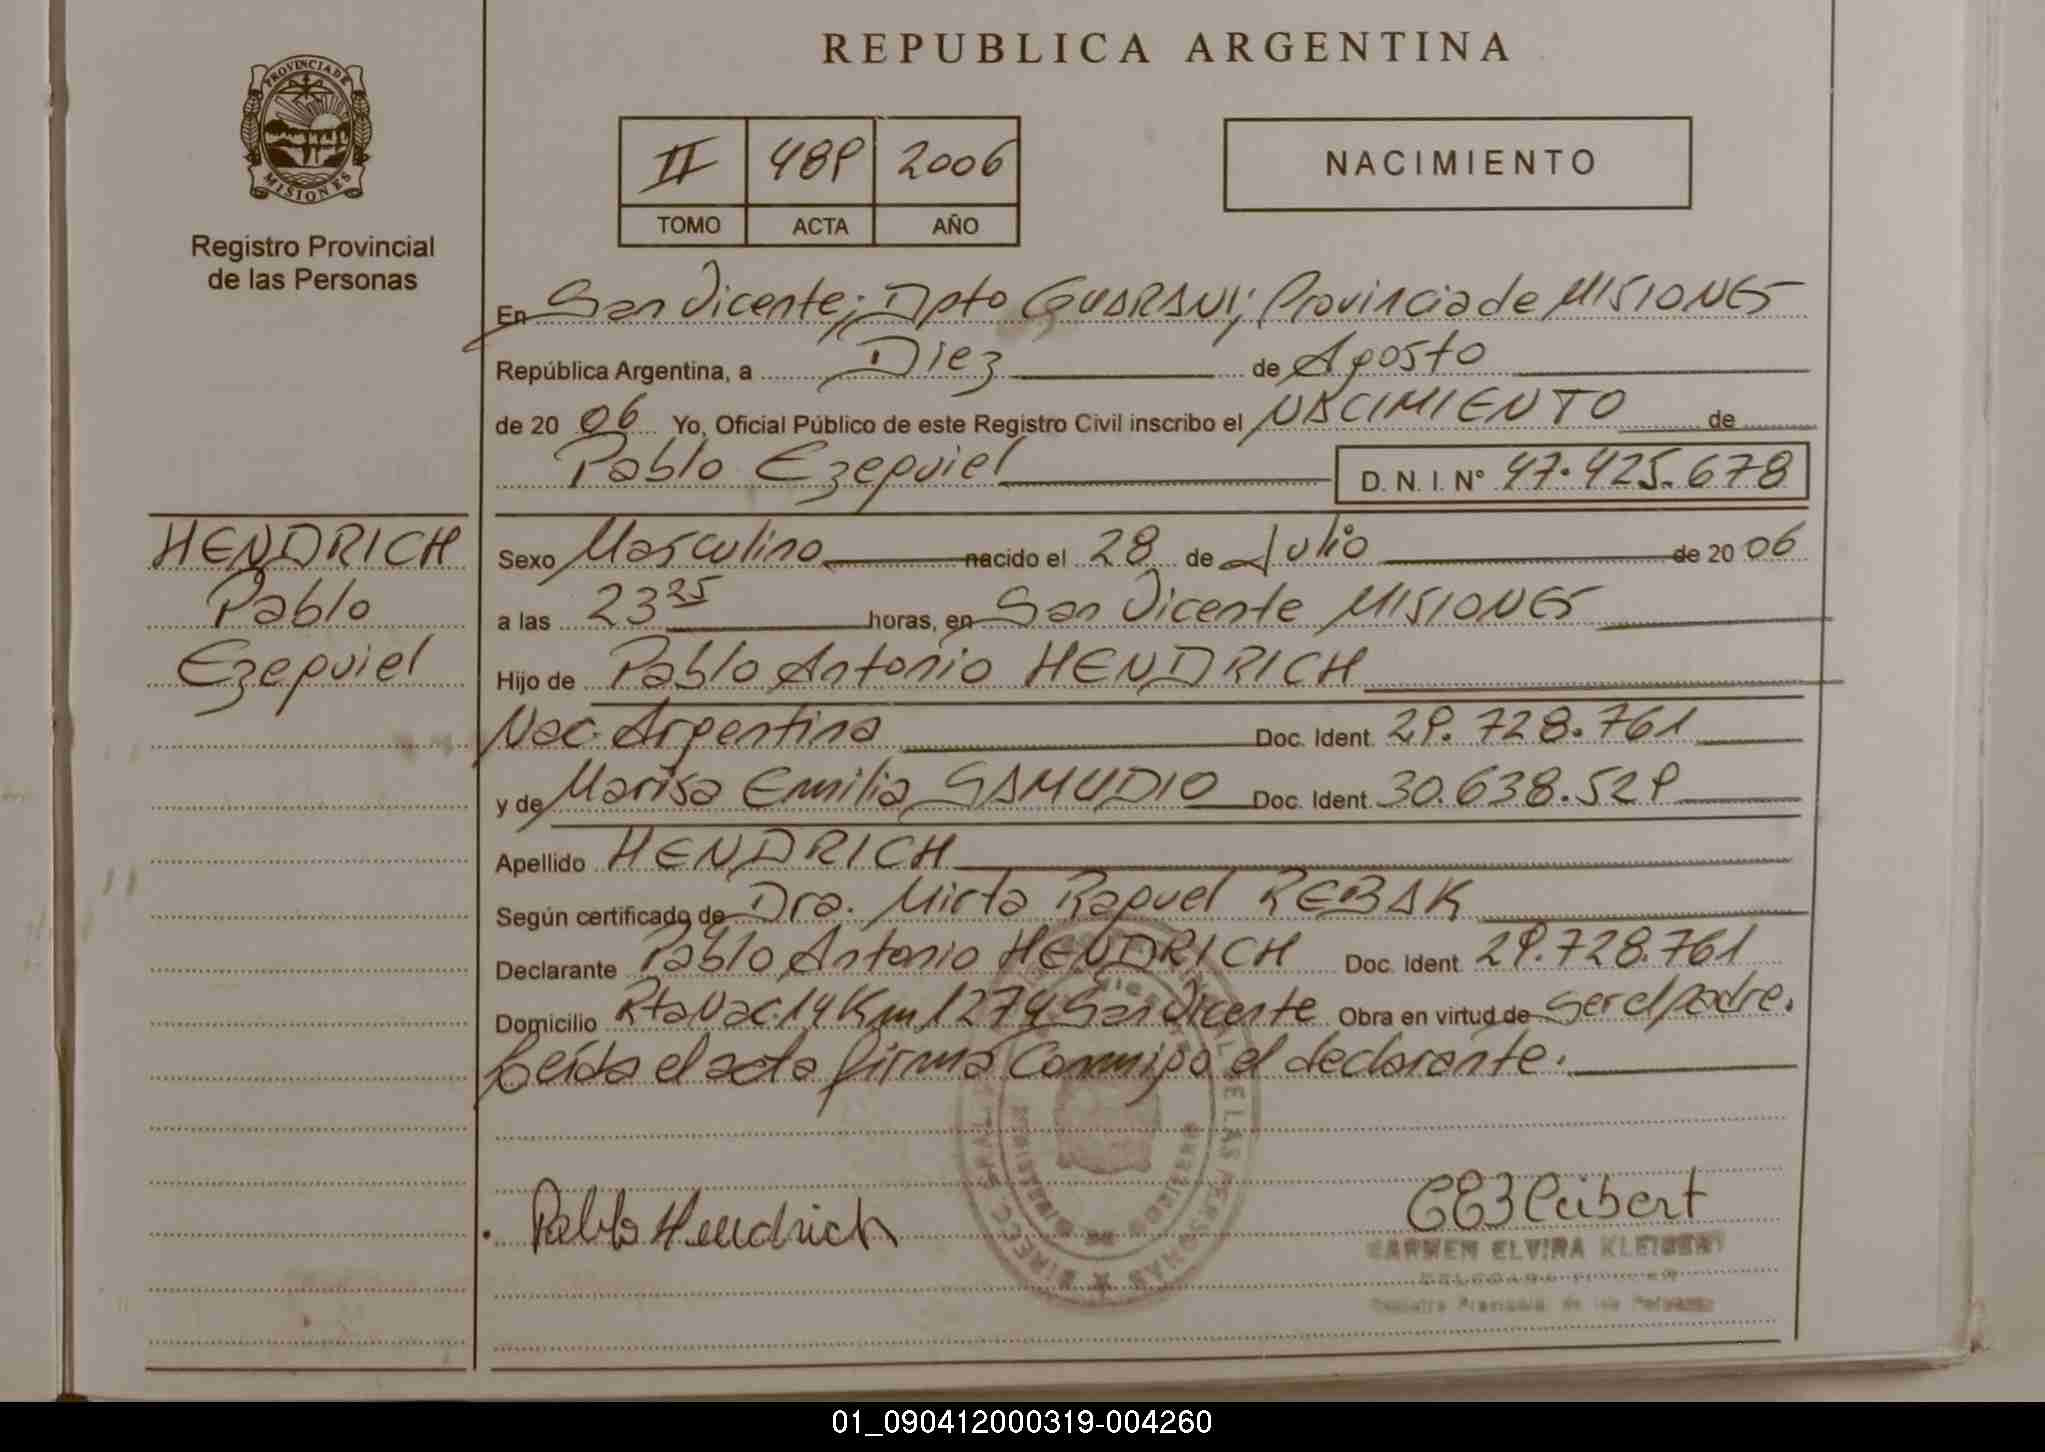 REPUBLICA ARGENTINA
PROVINCIA DE MISIONES
Registro Provincial
de las Personas
II 489 2006
TOMO ACTA AÑO
NACIMIENTO
En San Vicente; Dpto GUARANI; Provincia de MISIONES
República Argentina, a Diez de Agosto
de 20 06 Yo, Oficial Público de este Registro Civil inscribo el NACIMIENTO de
Pablo Ezequiel D. N. I. N° 47.425.678
HENDRICH
Pablo
Ezequiel
Sexo Masculino nacido el 28 de Julio de 20 06
a las 23 25 horas, en San Vicente MISIONES
Hijo de Pablo Antonio HENDRICH
Nac. Argentina Doc. Ident. 29.728.761
y de Marisa Emilia SAMUDIO Doc. Ident. 30.638.529
Apellido HENDRICH
Según certificado de Dra. Mirta Raquel REBAK
Declarante Pablo Antonio HENDRICH Doc. Ident. 29.728.761
Domicilio Rta Nac. 14 Km 1274 San Vicente Obra en virtud de Ser el padre.
Leída el acta firma Conmigo el declarante.
Pablo Hendrich
CEKleibert
CARMEN ELVIRA KLEIBERT
Registro Provincial de las Personas
01_090412000319-004260